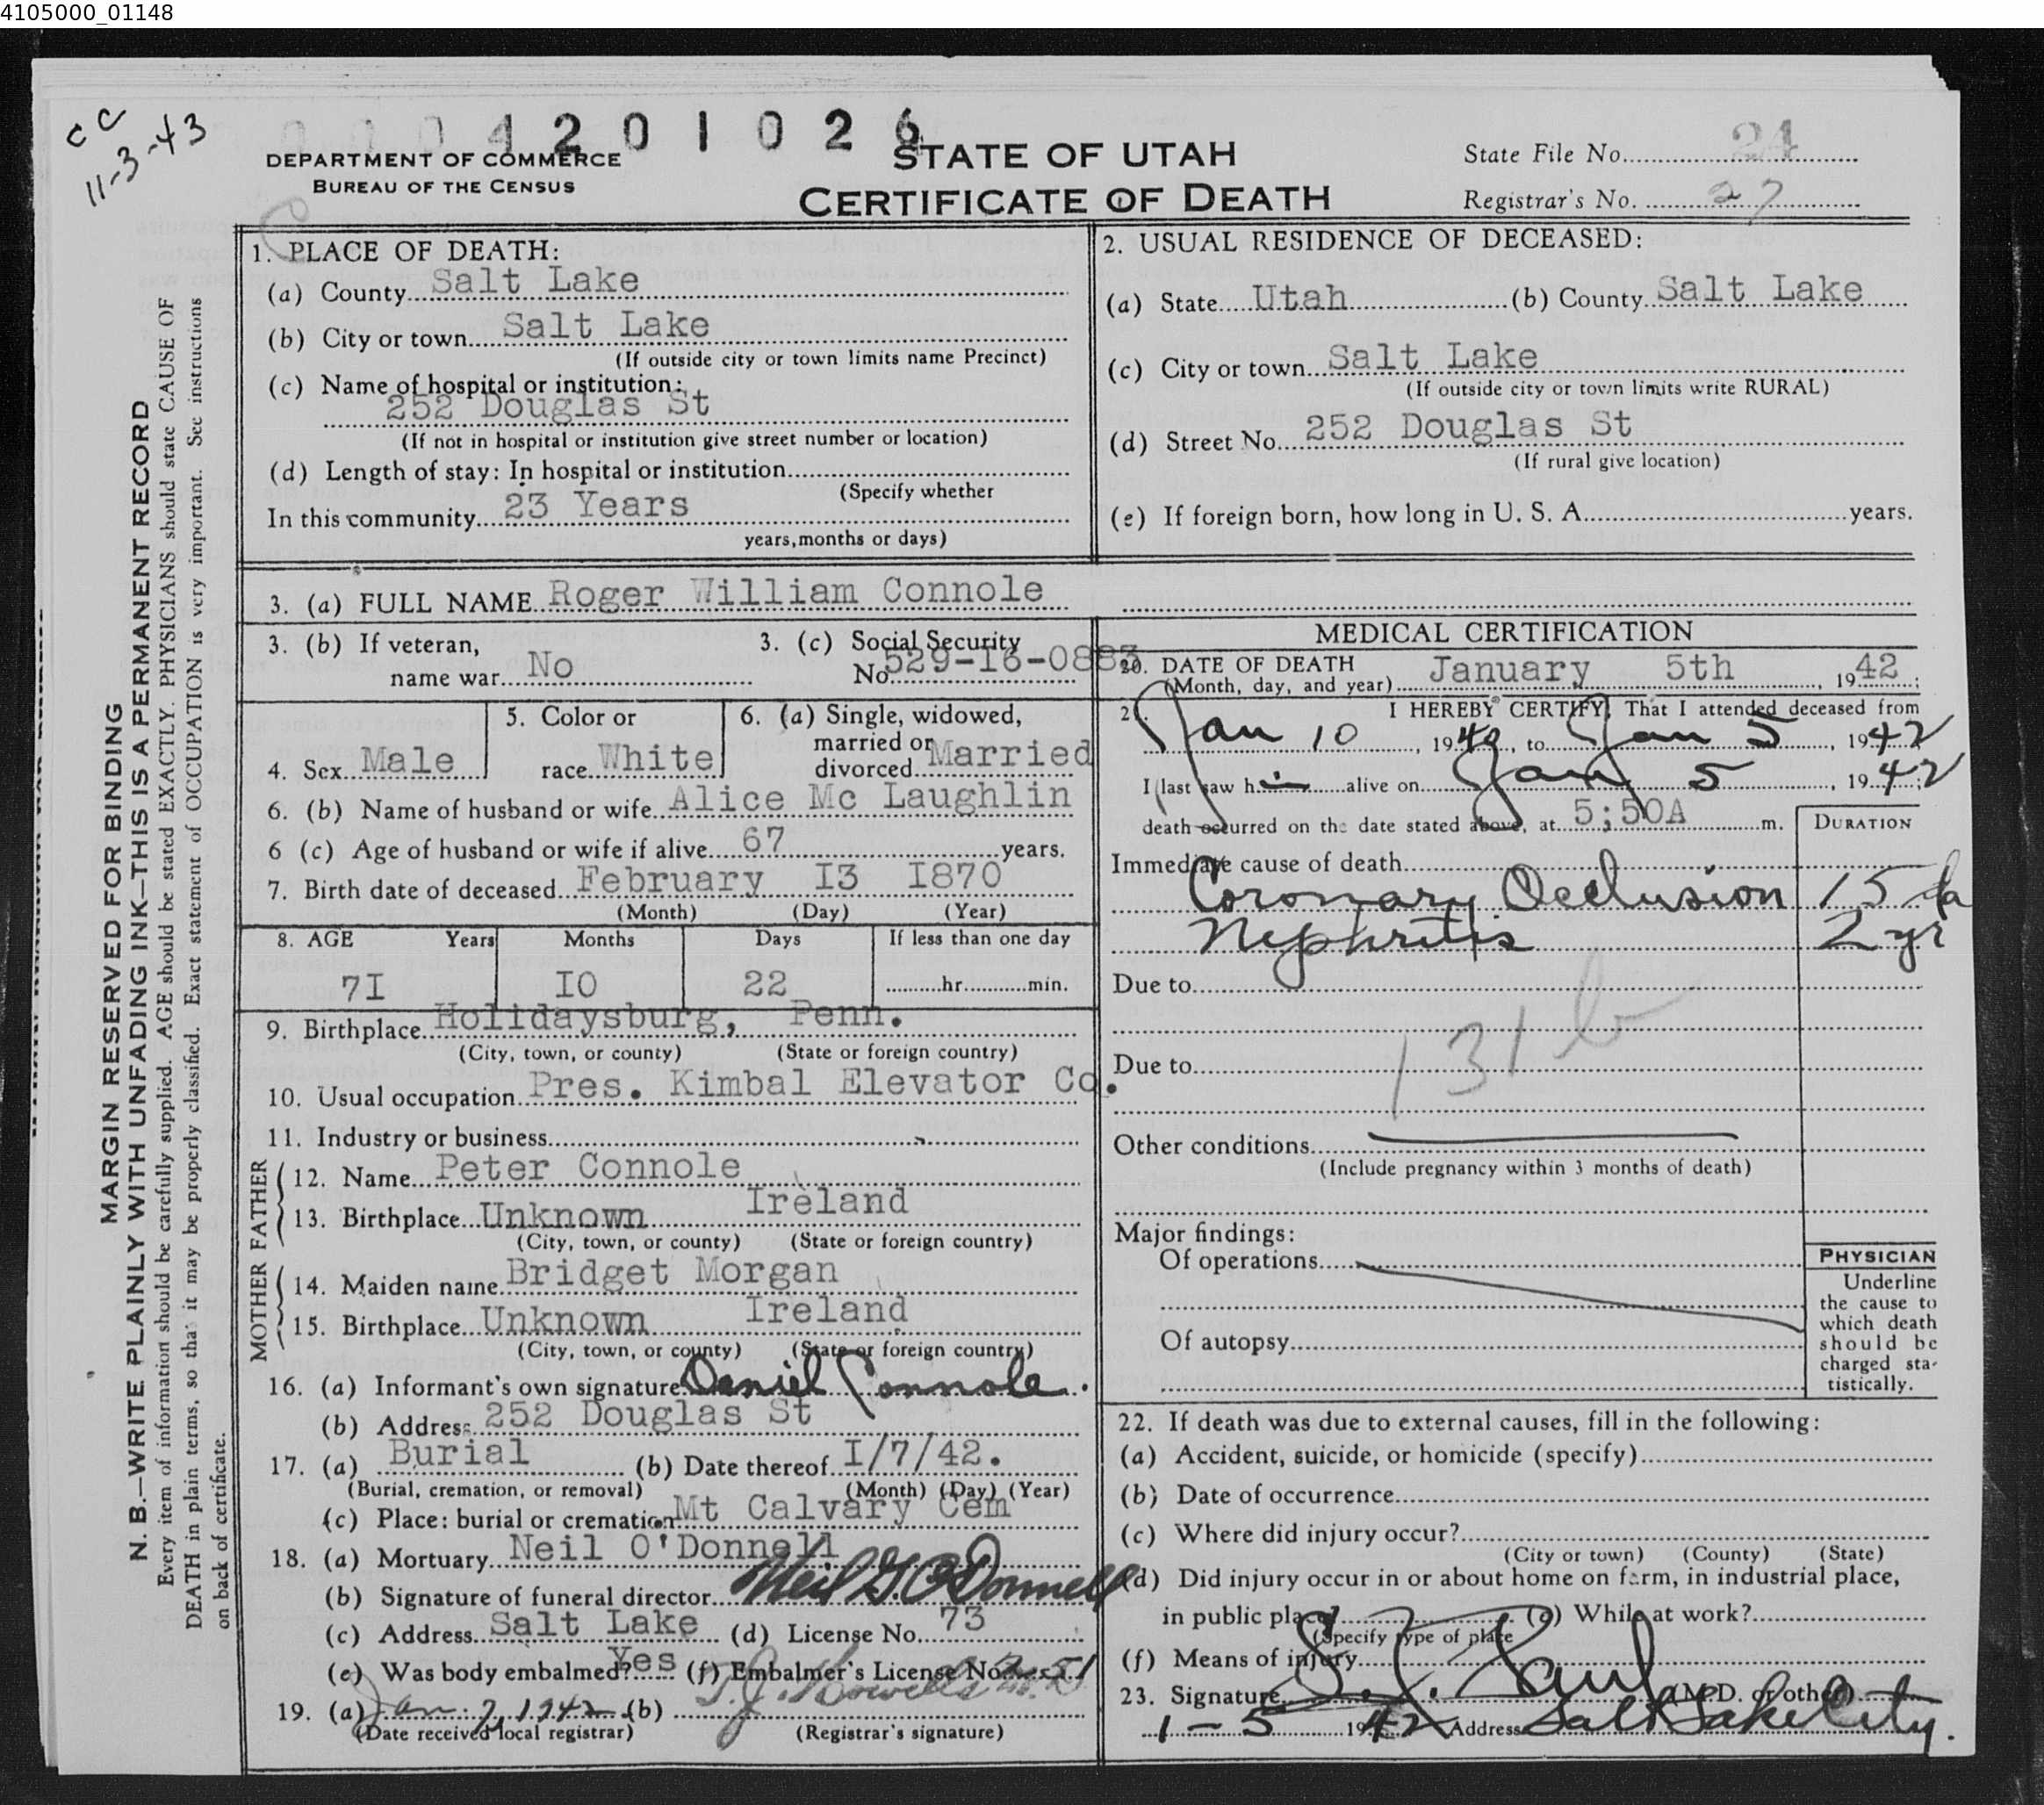 4105000_01148
CC
11-3-43
0004201026
DEPARTMENT OF COMMERCE
BUREAU OF THE CENSUS
STATE OF UTAH
CERTIFICATE OF DEATH
State File No. 24
Registrar's No. 27
MARGIN RESERVED FOR BINDING
N. B.—WRITE PLAINLY WITH UNFADING INK—THIS IS A PERMANENT RECORD
Every item of information should be carefully supplied. AGE should be stated EXACTLY. PHYSICIANS should state CAUSE OF
DEATH in plain terms, so that it may be properly classified. Exact statement of OCCUPATION is very important. See instructions
on back of certificate.
1. PLACE OF DEATH:
(a) County Salt Lake
(b) City or town Salt Lake
(If outside city or town limits name Precinct)
(c) Name of hospital or institution:
252 Douglas St
(If not in hospital or institution give street number or location)
(d) Length of stay: In hospital or institution
(Specify whether
In this community 23 Years
years, months or days)
2. USUAL RESIDENCE OF DECEASED:
(a) State Utah (b) County Salt Lake
(c) City or town Salt Lake
(If outside city or town limits write RURAL)
(d) Street No. 252 Douglas St
(If rural give location)
(e) If foreign born, how long in U. S. A. years.
3. (a) FULL NAME Roger William Connole
3. (b) If veteran,
name war No
3. (c) Social Security
No. 529-16-0883
4. Sex Male
5. Color or
race White
6. (a) Single, widowed,
married or
divorced Married
6. (b) Name of husband or wife Alice Mc Laughlin
6 (c) Age of husband or wife if alive 67 years.
7. Birth date of deceased February I3 I870
(Month) (Day) (Year)
8. AGE Years Months Days If less than one day
7I I0 22 hr. min.
9. Birthplace Holidaysburg, Penn.
(City, town, or county) (State or foreign country)
10. Usual occupation Pres. Kimbal Elevator Co.
11. Industry or business
FATHER
12. Name Peter Connole
13. Birthplace Unknown Ireland
(City, town, or county) (State or foreign country)
MOTHER
14. Maiden name Bridget Morgan
15. Birthplace Unknown Ireland
(City, town, or county) (State or foreign country)
16. (a) Informant's own signature Daniel Connole.
(b) Address 252 Douglas St
17. (a) Burial (b) Date thereof I/7/42.
(Burial, cremation, or removal) (Month) (Day) (Year)
(c) Place: burial or cremation Mt Calvary Cem
18. (a) Mortuary Neil O'Donnell
(b) Signature of funeral director Neil G. O'Donnell
(c) Address Salt Lake (d) License No. 73
(e) Was body embalmed? Yes (f) Embalmer's License No. 51
19. (a) Jan. 7, 1942 (b)
(Date received local registrar) (Registrar's signature)
MEDICAL CERTIFICATION
20. DATE OF DEATH
(Month, day, and year) January 5th, 1942;
21. I HEREBY CERTIFY, That I attended deceased from
Jan 10, 1940, to Jan 5, 1942
I last saw him alive on Jan 5, 1942;
death occurred on the date stated above, at 5;50A m.
DURATION
Immediate cause of death
Coronary Occlusion 15 da
Nephritis 2 yr
Due to
131b
Due to
Other conditions
(Include pregnancy within 3 months of death)
Major findings:
Of operations
Of autopsy
PHYSICIAN
Underline
the cause to
which death
should be
charged sta-
tistically.
22. If death was due to external causes, fill in the following:
(a) Accident, suicide, or homicide (specify)
(b) Date of occurrence
(c) Where did injury occur?
(City or town) (County) (State)
(d) Did injury occur in or about home on farm, in industrial place,
in public place? (e) While at work?
(Specify type of place
(f) Means of injury
23. Signature (M.D. or other)
1-5 1942 Address Salt Lake City.